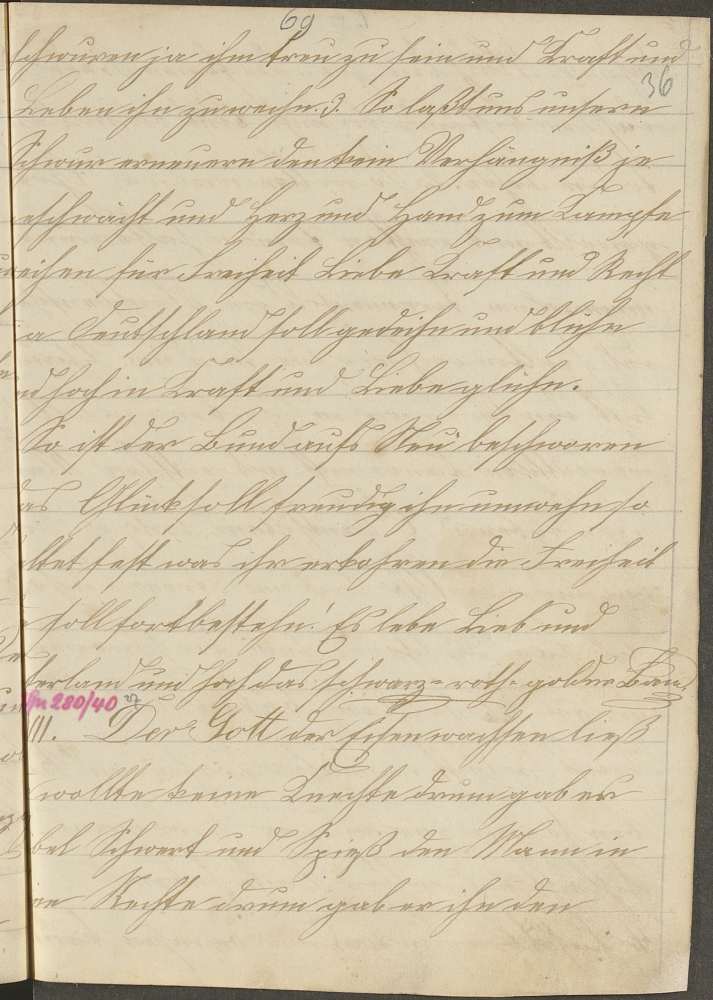 69
36
schwuren ja ihm treu zu sein und Kraft und
Leben ihn zu weihn. 3. So laßt uns unsern
Schwur erneuern den kein Verhängniß je
geschwächt und Herz und Hand zum Kampfe
reihen für Freiheit Liebe Kraft und Recht
ja Deutschland soll gedeihn und blühn
nd hoch in Kraft und Liebe glühn.
So ist der Bund aufs Neu beschworen
as Glück soll freudig ihn umwehn so
ltet fest was ihr erkohren die Freiheit
soll fortbestehn! Es lebe Lieb und
terland und hoch das schwarz=roth=goldne Band
280/40 37
III. Der Gott der Eisen wachsen ließ
wollte keine Knechte drum gab er
bel Schwert und Spieß den Mann in
ne Rechte drum gab er ihn den